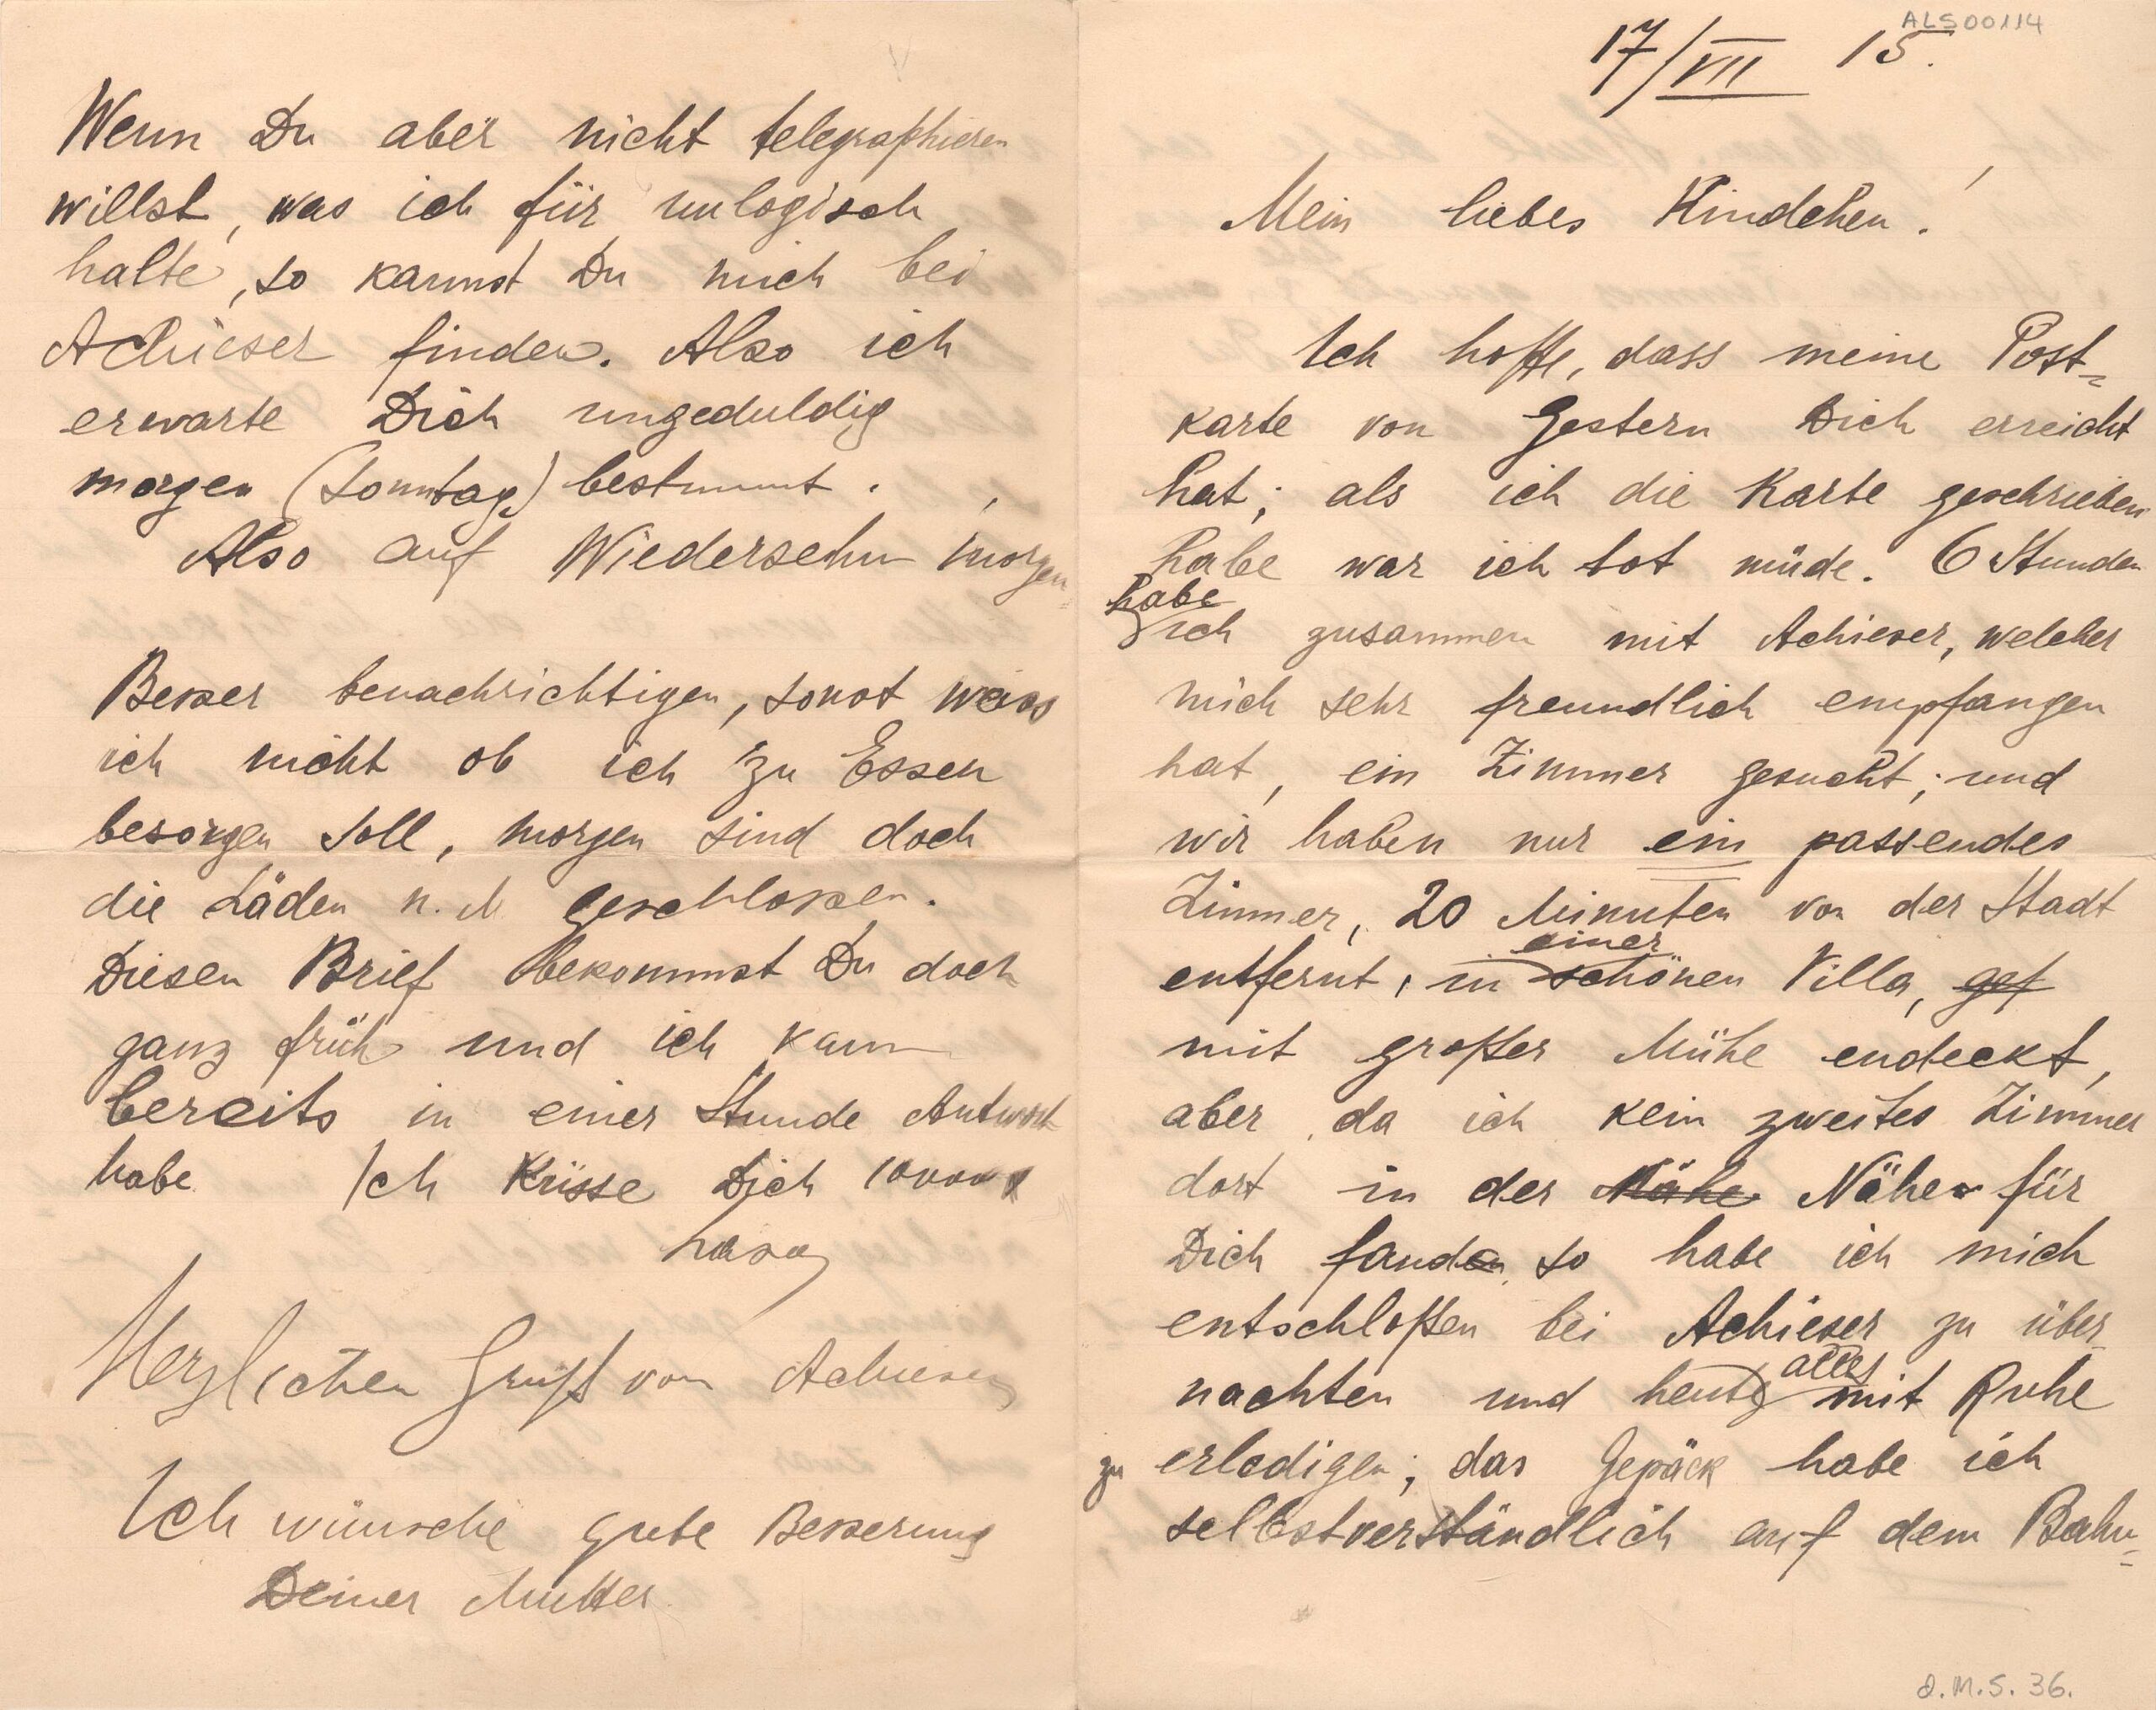 ALS00114
17/VII 15.
Mein liebes Kindchen!
Ich hoffe, dass meine Post-
karte von Gestern Dich erreicht
hat; als ich die Karte geschrieben
habe war ich tot müde. 6 Stunden
habe
ich zusammen mit Achieser, welcher
mich sehr freundlich empfangen
hat, ein Zimmer gesucht; und
wir haben nur ein passendes
Zimmer, 20 Minuten von der Stadt
einer
entfernt, in schönen Villa, gef
mit großer Mühe endeckt,
aber da ich kein zweites Zimmer
dort in der Nähe Nähe für
Dich fanden so habe ich mich
entschloßen bei Achieser zu über
alles
nachten und heute mit Ruhe
zu erledigen; das Gepäck habe ich
selbstverständlich auf dem Bahn-
O.M.S. 36.
Wenn Du aber nicht telegraphieren
willst, was ich für unlogisch
halte, so kannst Du mich bei
Achieser finden. Also ich
erwarte Dich ungeduldig
morgen (Sonntag) bestimmt.
Also auf Wiedersehn morgen
Besser benachrichtigen, sonst weiss
ich nicht ob ich zu Essen
besorgen soll, morgen sind doch
die Läden n. M geschlossen.
Diesen Brief bekommst Du doch
ganz früh und ich kann
bereits in einer Stunde Antwort
habe Ich Küsse Dich
Herzlichen Gruß von Achieser
Ich wünsche gute Besserung
Deiner Mutter.